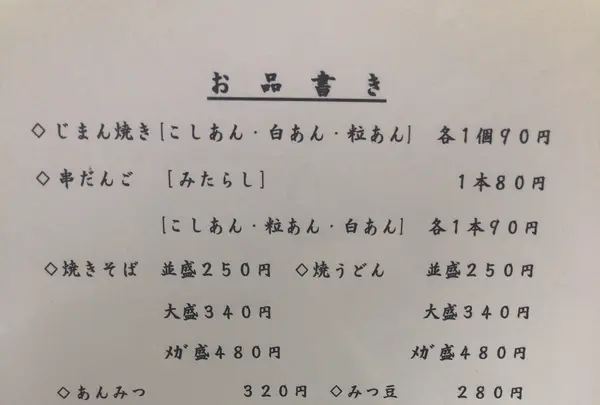 お品書き
◇じまん焼き[こしあん・白あん・粒あん] 各1個90円
◇串だんご [みたらし] 1本80円
[こしあん・粒あん・白あん] 各1本90円
◇焼きそば 並盛250円 ◇焼うどん 並盛250円
大盛340円 大盛340円
メガ盛480円 メガ盛480円
◇あんみつ 320円 ◇みつ豆 280円